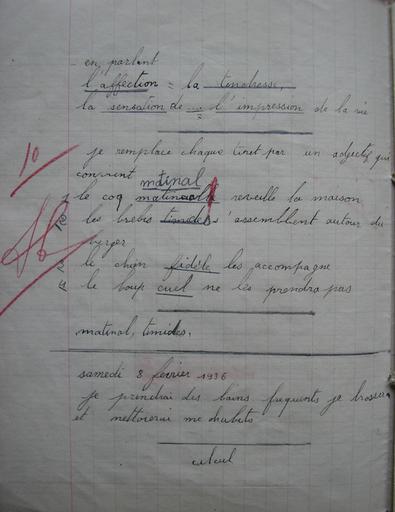 en parlant
l'affection = la tendresse,
la sensation de ... = l'impression de la vie
je remplace chaque tiret par un adjectif qui
convient
matinal
le coq reveille la maison
les brebis timides s'assemblent autour du
berger
le chien fidèle les accompagne
le loup cuel ne les prendra pas
10
matinal, timides.
samedi 8 février 1936
je prendrai des bains frequents je brosserai
et nettoierai me
calcul